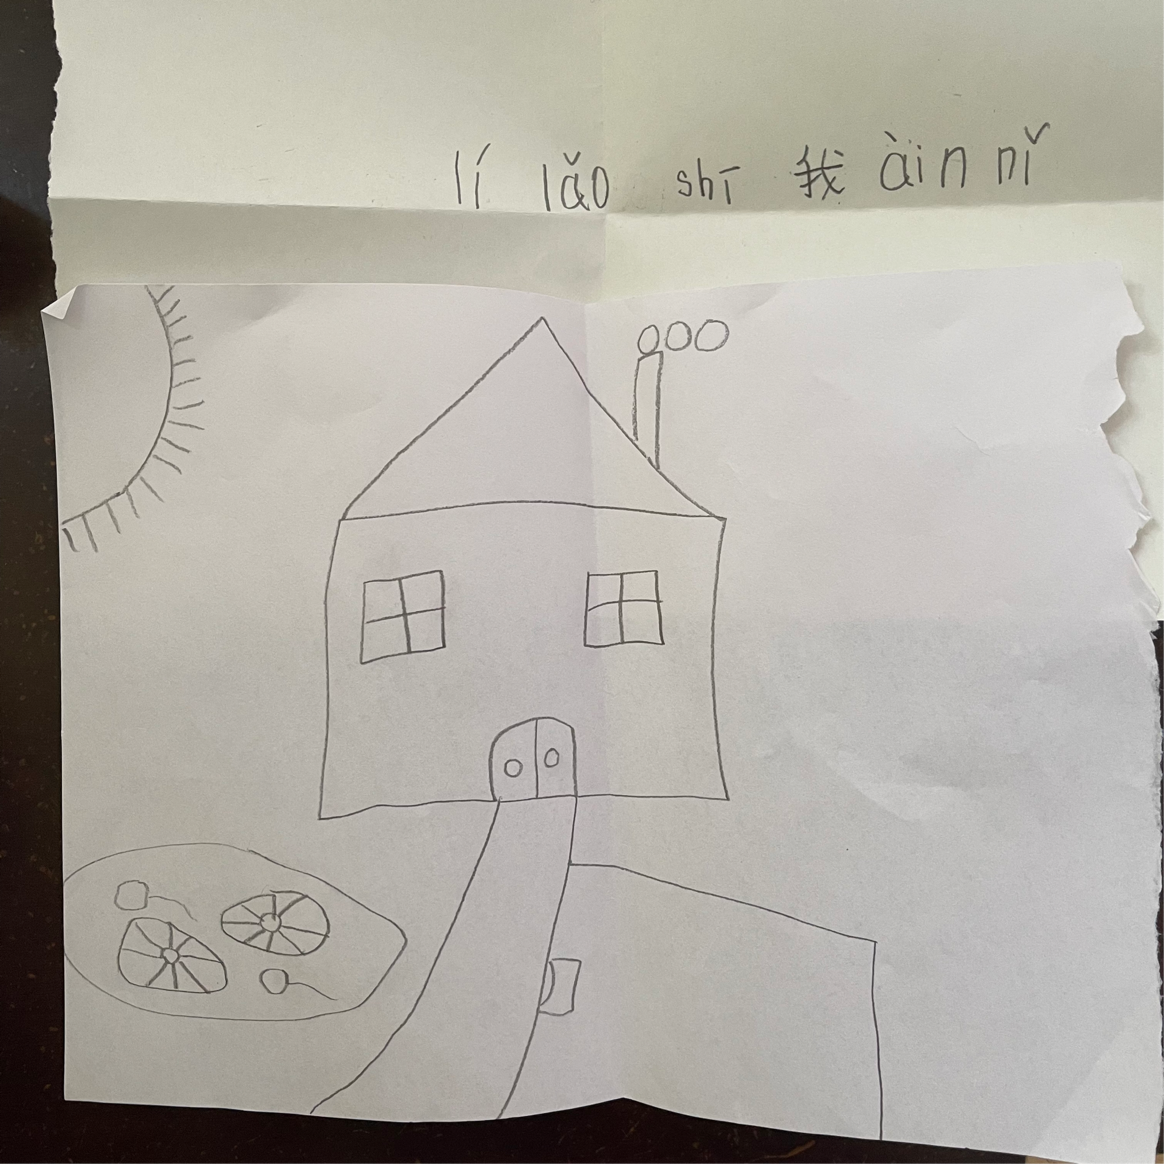 lí lǎo shī 我 àin nǐ